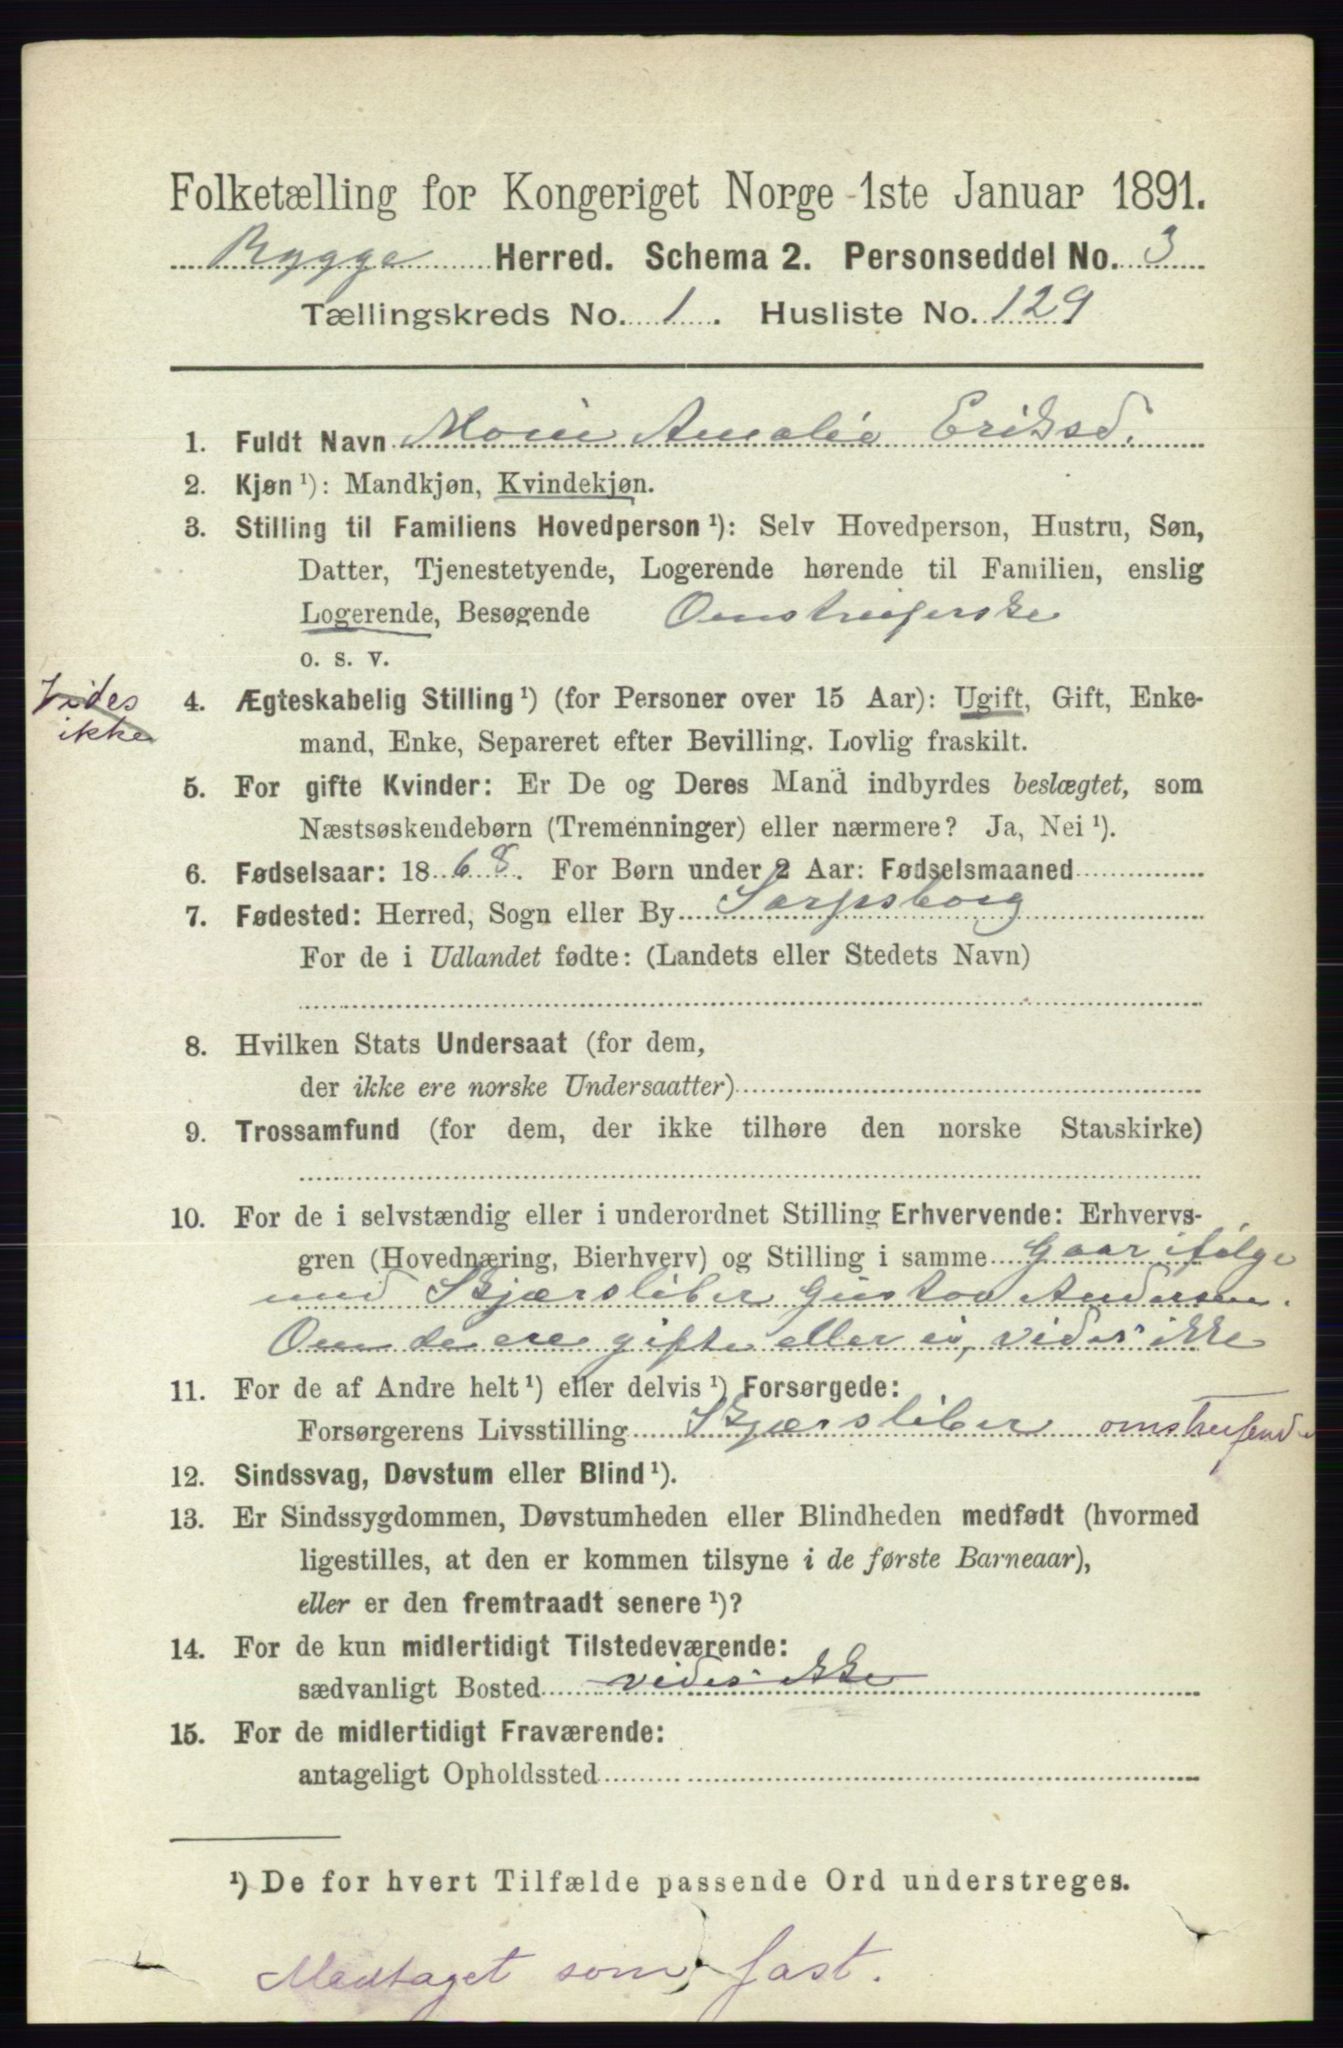 Folketælling for Kongeriget Norge 1ste Januar 1891.
Rygge Herred. Schema 2. Personseddel No. 3
Tællingskreds No. 1. Husliste No. 129
1. Fuldt Navn Amalie Eriksd.
2. Kjøn ¹): Mandkjøn, Kvindekjøn.
3. Stilling til Familiens Hovedperson ¹): Selv Hovedperson, Hustru, Søn,
Datter, Tjenestetyende, Logerende hørende til Familien, enslig
Logerende, Besøgende Omstreiferske
o. s. v.
Vides
ikke
4. Ægteskabelig Stilling ¹) (for Personer over 15 Aar): Ugift, Gift, Enke-
mand, Enke, Separeret efter Bevilling. Lovlig fraskilt.
5. For gifte Kvinder: Er De og Deres Mand indbyrdes beslægtet, som
Næstsøskendebørn (Tremenninger) eller nærmere? Ja, Nei ¹).
6. Fødselsaar: 1868. For Børn under 2 Aar: Fødselsmaaned
7. Fødested: Herred, Sogn eller By Sarpsborg
For de i Udlandet fødte: (Landets eller Stedets Navn)
8. Hvilken Stats Undersaat (for dem,
der ikke ere norske Undersaatter)
9. Trossamfund (for dem, der ikke tilhøre den norske Statskirke)
10. For de i selvstændig eller i underordnet Stilling Erhvervende: Erhvervs-
gren (Hovednæring, Bierhverv) og Stilling i samme Gaar i følge
med Skjærsliber Gustav Andersen.
Om de ere gifte eller ei, vides ikke
11. For de af Andre helt ¹) eller delvis ¹) Forsørgede:
Forsørgerens Livsstilling Skjærsliber omstreifende
12. Sindssvag, Døvstum eller Blind ¹).
13. Er Sindssygdommen, Døvstumheden eller Blindheden medfødt (hvormed
ligestilles, at den er kommen tilsyne i de første Barneaar),
eller er den fremtraadt senere ¹)?
14. For de kun midlertidigt Tilstedeværende:
sædvanligt Bosted vides ikke
15. For de midlertidigt Fraværende:
antageligt Opholdssted
¹) De for hvert Tilfælde passende Ord understreges.
Medtaget som fast.